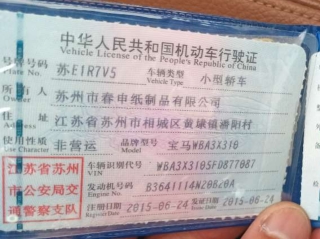 中华人民共和国机动车行驶证
Vehicle License of the People's Republic of China
号牌号码 苏E1R7V5 车辆类型 小型轿车
Plate No. Vehicle Type
所有人 苏州市春申纸制品有限公司
Owner
住址 江苏省苏州市相城区黄埭镇潘阳村
Address
使用性质 非营运 品牌型号 宝马WBA3X310
Use Character Model
江苏省苏州市公安局交通警察支队
车辆识别代号 WBA3X3105FD877087
VIN
发动机号码 B3641114N20B20A
Engine No.
注册日期 2015-06-24 发证日期 2015-06-24
Register Date Issue Date